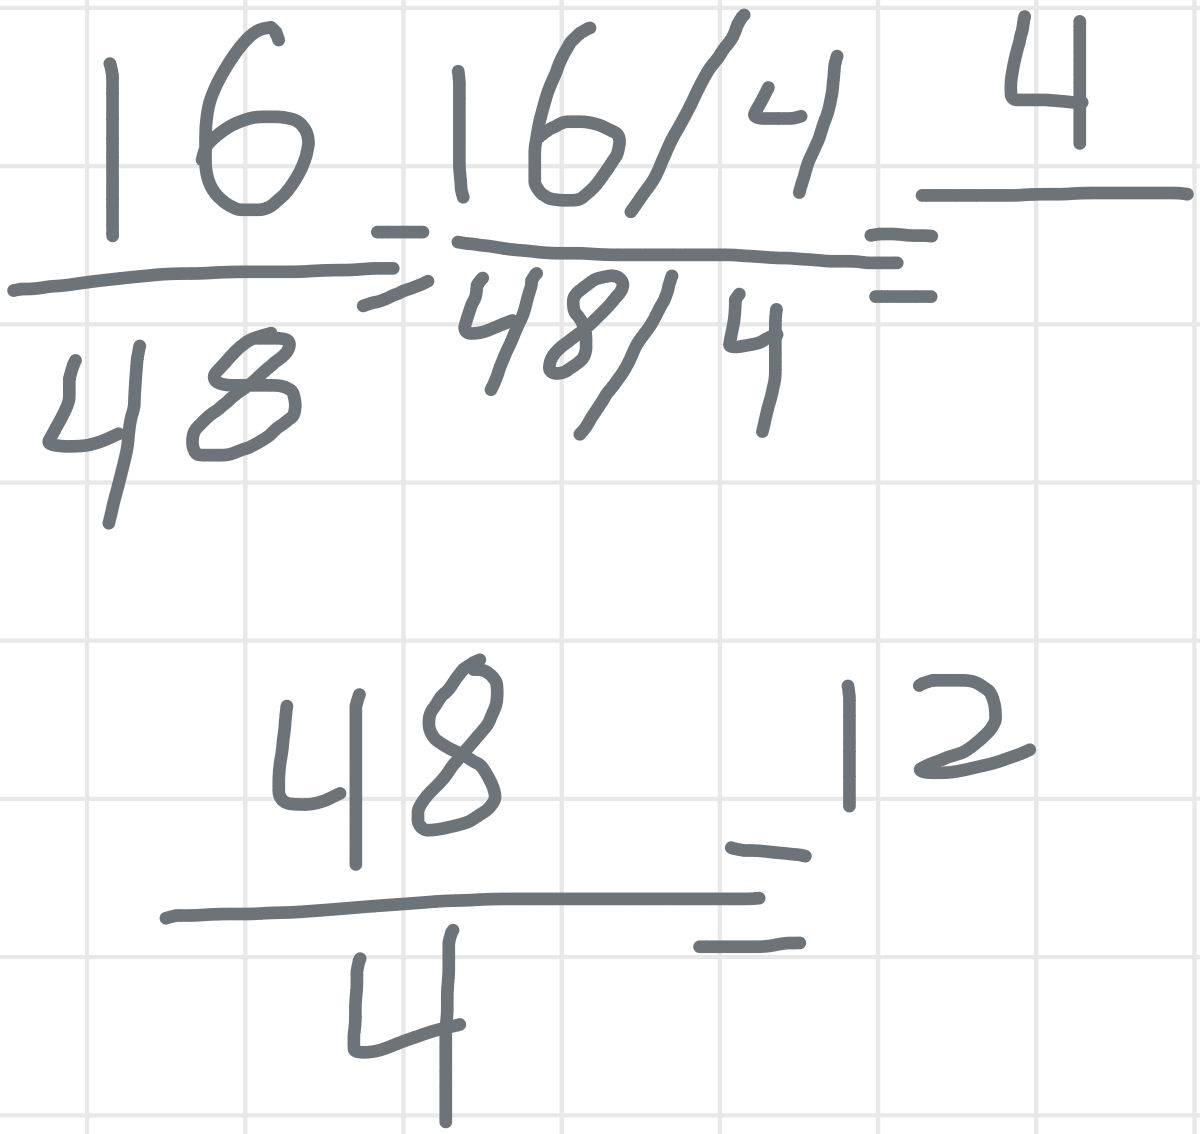 16/48 = 16/4 / 48/4 = 4/
48/4 = 12